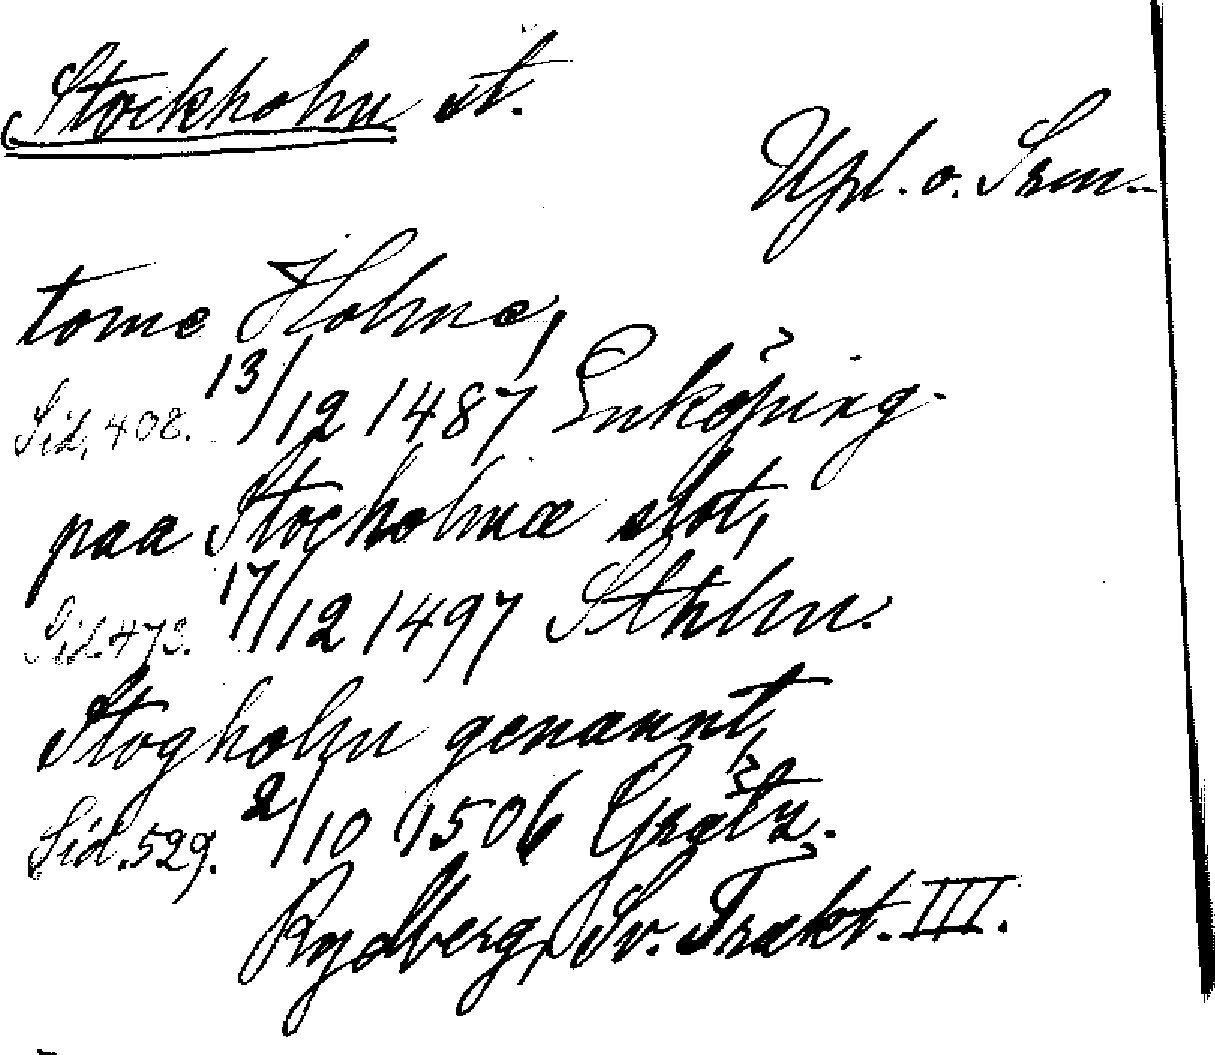 Stockholm st.
Upl. o. Srm.
tome Holme,
Sid. 408. 13/12 1487 Enköping.
paa Stocholmæ slot,
Sid. 473. 17/12 1497 Sthlm.
Stogholm genannt,
Sid. 529. 2/10 1506 Grätz.
Rydberg, Sv. Trakt. III.